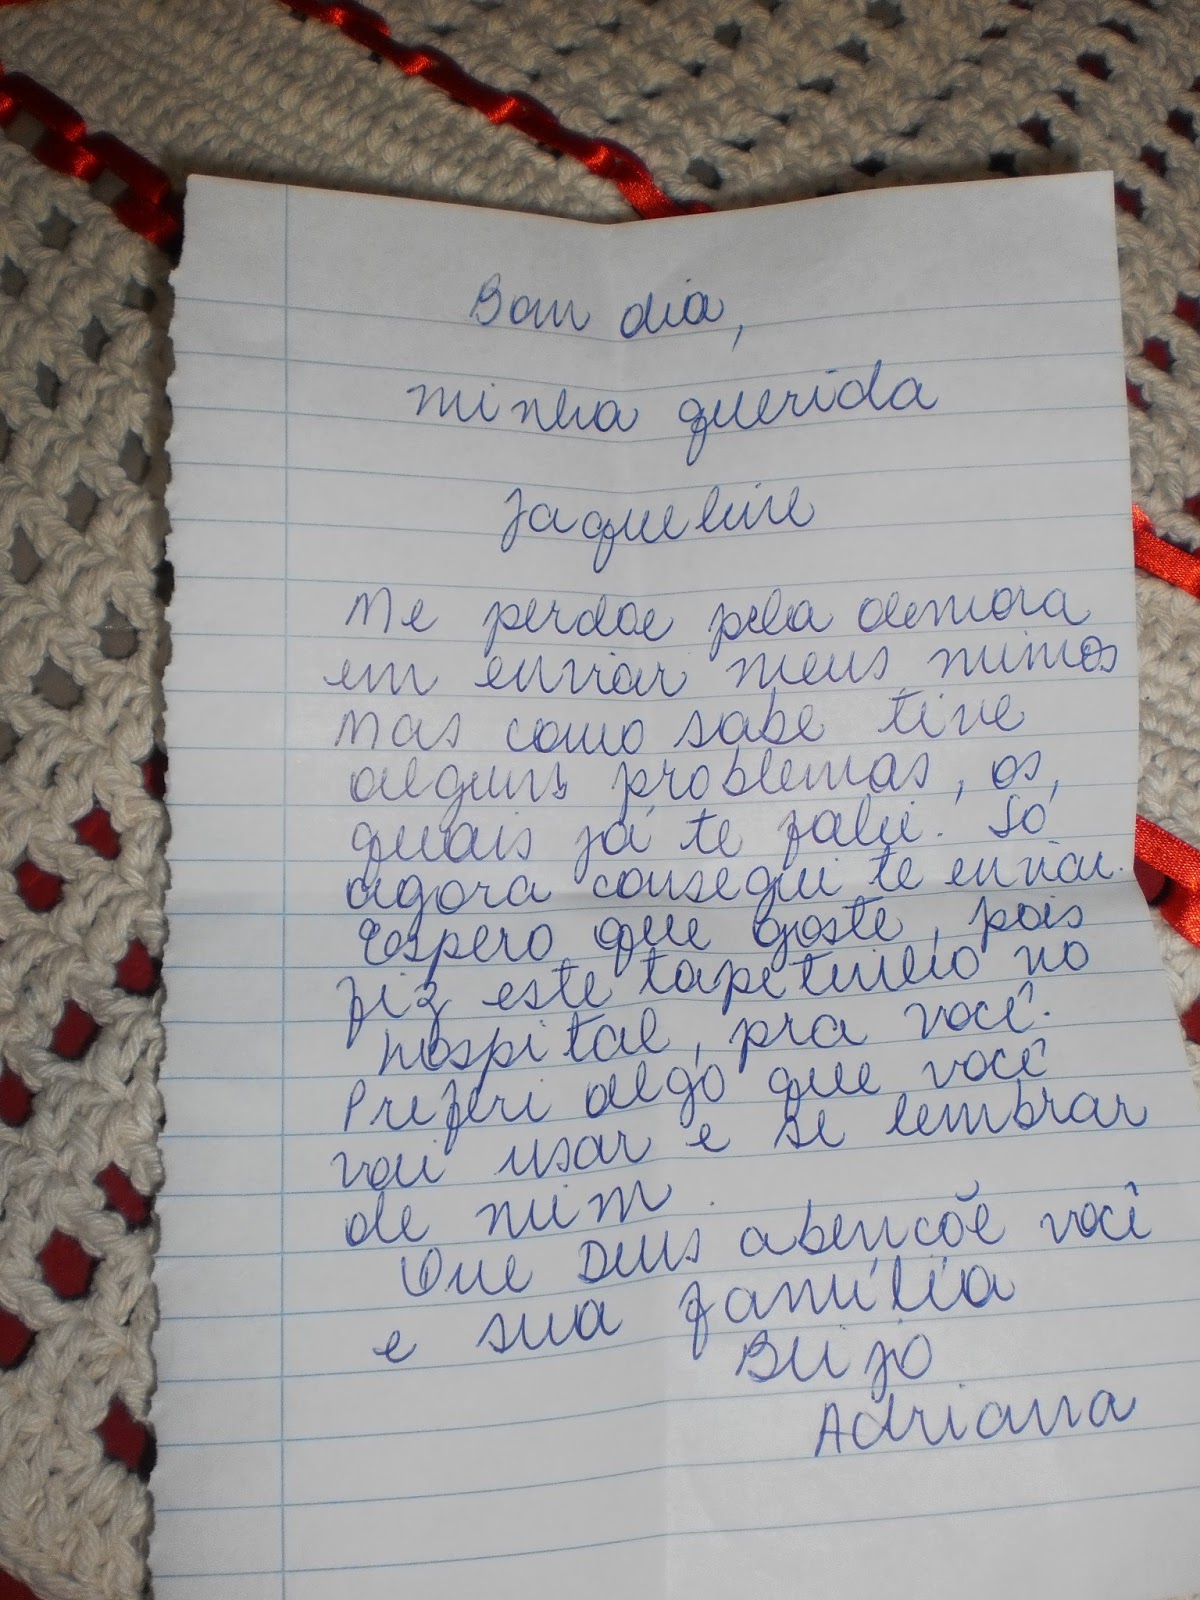 Bom dia,
minha querida
Jaqueline
Me perdoe pela demora
em enviar meus mimos
mas como sabe tive
alguns problemas, os,
quais já te falei. Só
agora consegui te enviar.
Espero que goste, pois
fiz este tapetinho no
hospital, pra você.
Preferi algo que você
vai usar e se lembrar
de mim.
Que Deus abençõe você
e sua família
Beijo
Adriana